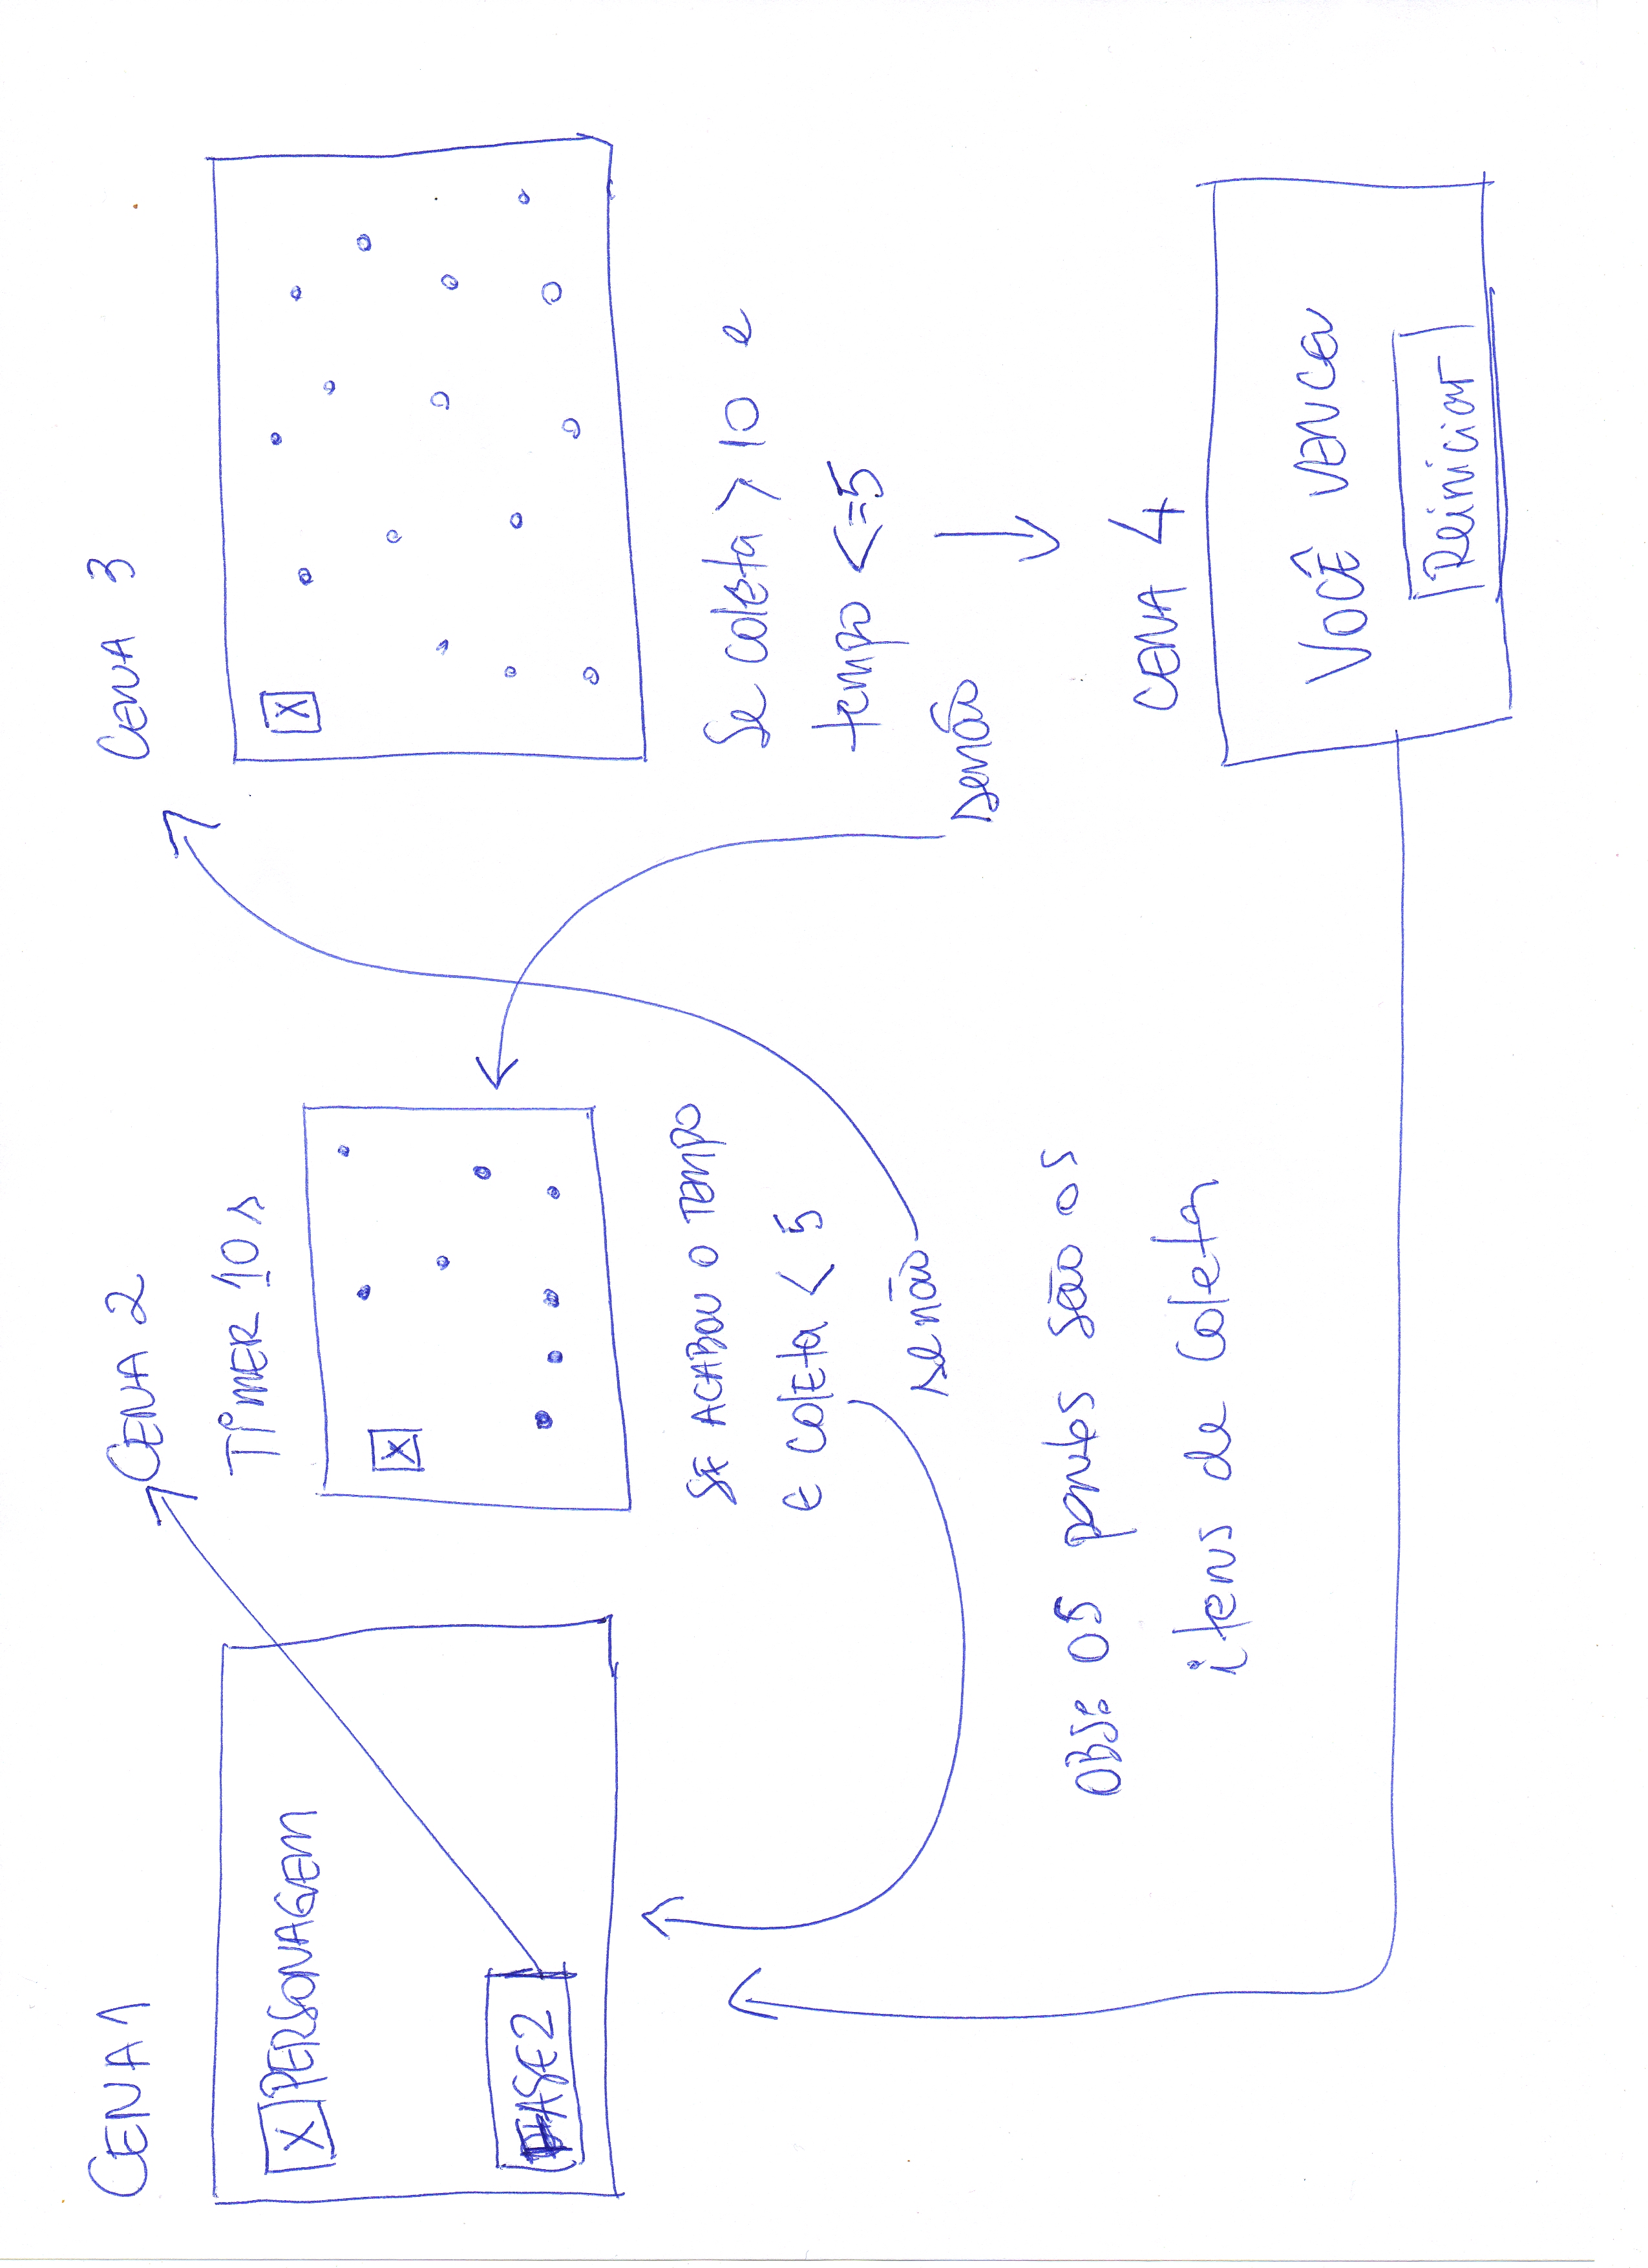 CENA 1
X PERSONAGEM
FASE 2
CENA 2
TIMER 10 s
X
SE ACABOU O TEMPO
E COLEta < 5
senão
CENA 3
X
Se coleta > 10 e
tempo <=5
senão
OBS: OS pontos são os
itens de Coleta
CENA 4
VOCÊ VENCEU
Reiniciar